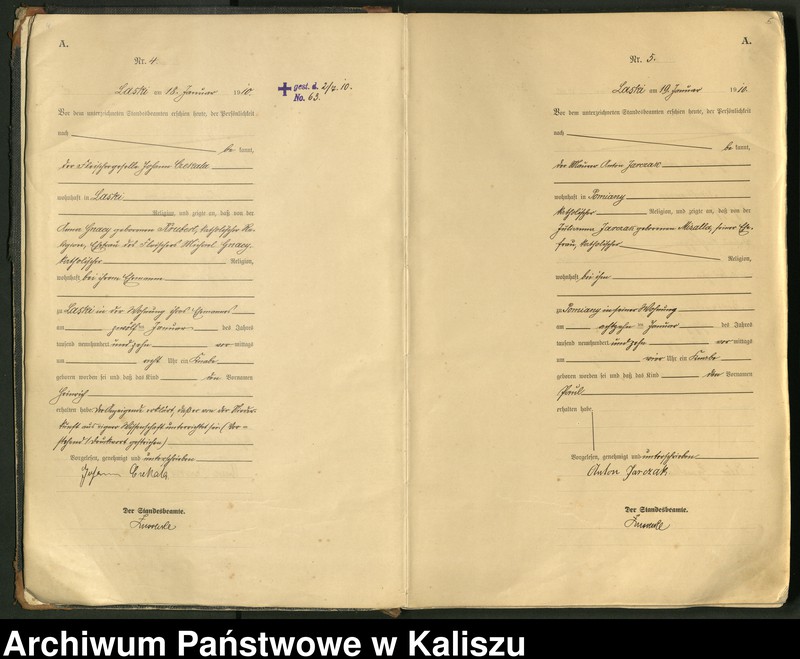 A.
Nr. 4.
Laski am 18. Januar 1910.
gest. d. 2/4. 10.
No. 63.
Vor dem unterzeichneten Standesbeamten erschien heute, der Persönlichkeit
nach
be kannt,
der Fleischergeselle Johann
wohnhaft in Laski
Religion, und zeigte an, daß von der
Anna Gnacy geborenen katholischer Re-
ligion, Ehefrau des Fleischers Michael Gnacy,
katholischer Religion,
wohnhaft bei ihrem Ehemanne
zu Laski in der Wohnung ihres Ehemannes
am zwölften Januar des Jahres
tausend neunhundert und zehn vor mittags
um acht Uhr ein Knabe
geboren worden sei und daß das Kind den Vornamen
Heinrich
erhalten habe. Der Anzeigende erklärt, daß er von der Nieder-
kunft aus eigener Wissenschaft unterrichtet sei (Vor-
stehend 1 Druckwort gestrichen)
Vorgelesen, genehmigt und unterschrieben
Johann
Der Standesbeamte.
A.
Nr. 5.
Laski am 19. Januar 1910.
Vor dem unterzeichneten Standesbeamten erschien heute, der Persönlichkeit
nach
be kannt,
der Maurer Anton Jarczak
wohnhaft in Pomiany
katholischer Religion, und zeigte an, daß von der
Julianna Jarczak geborenen Mralla, seiner Ehe-
frau, katholischer
Religion,
wohnhaft bei ihm
zu Pomiany in seiner Wohnung
am achtzehnten Januar des Jahres
tausend neunhundert und zehn vor mittags
um vier Uhr ein Knabe
geboren worden sei und daß das Kind den Vornamen
Paul
erhalten habe
Vorgelesen, genehmigt und unterschrieben
Anton Jarczak
Der Standesbeamte.
Archiwum Państwowe w Kaliszu